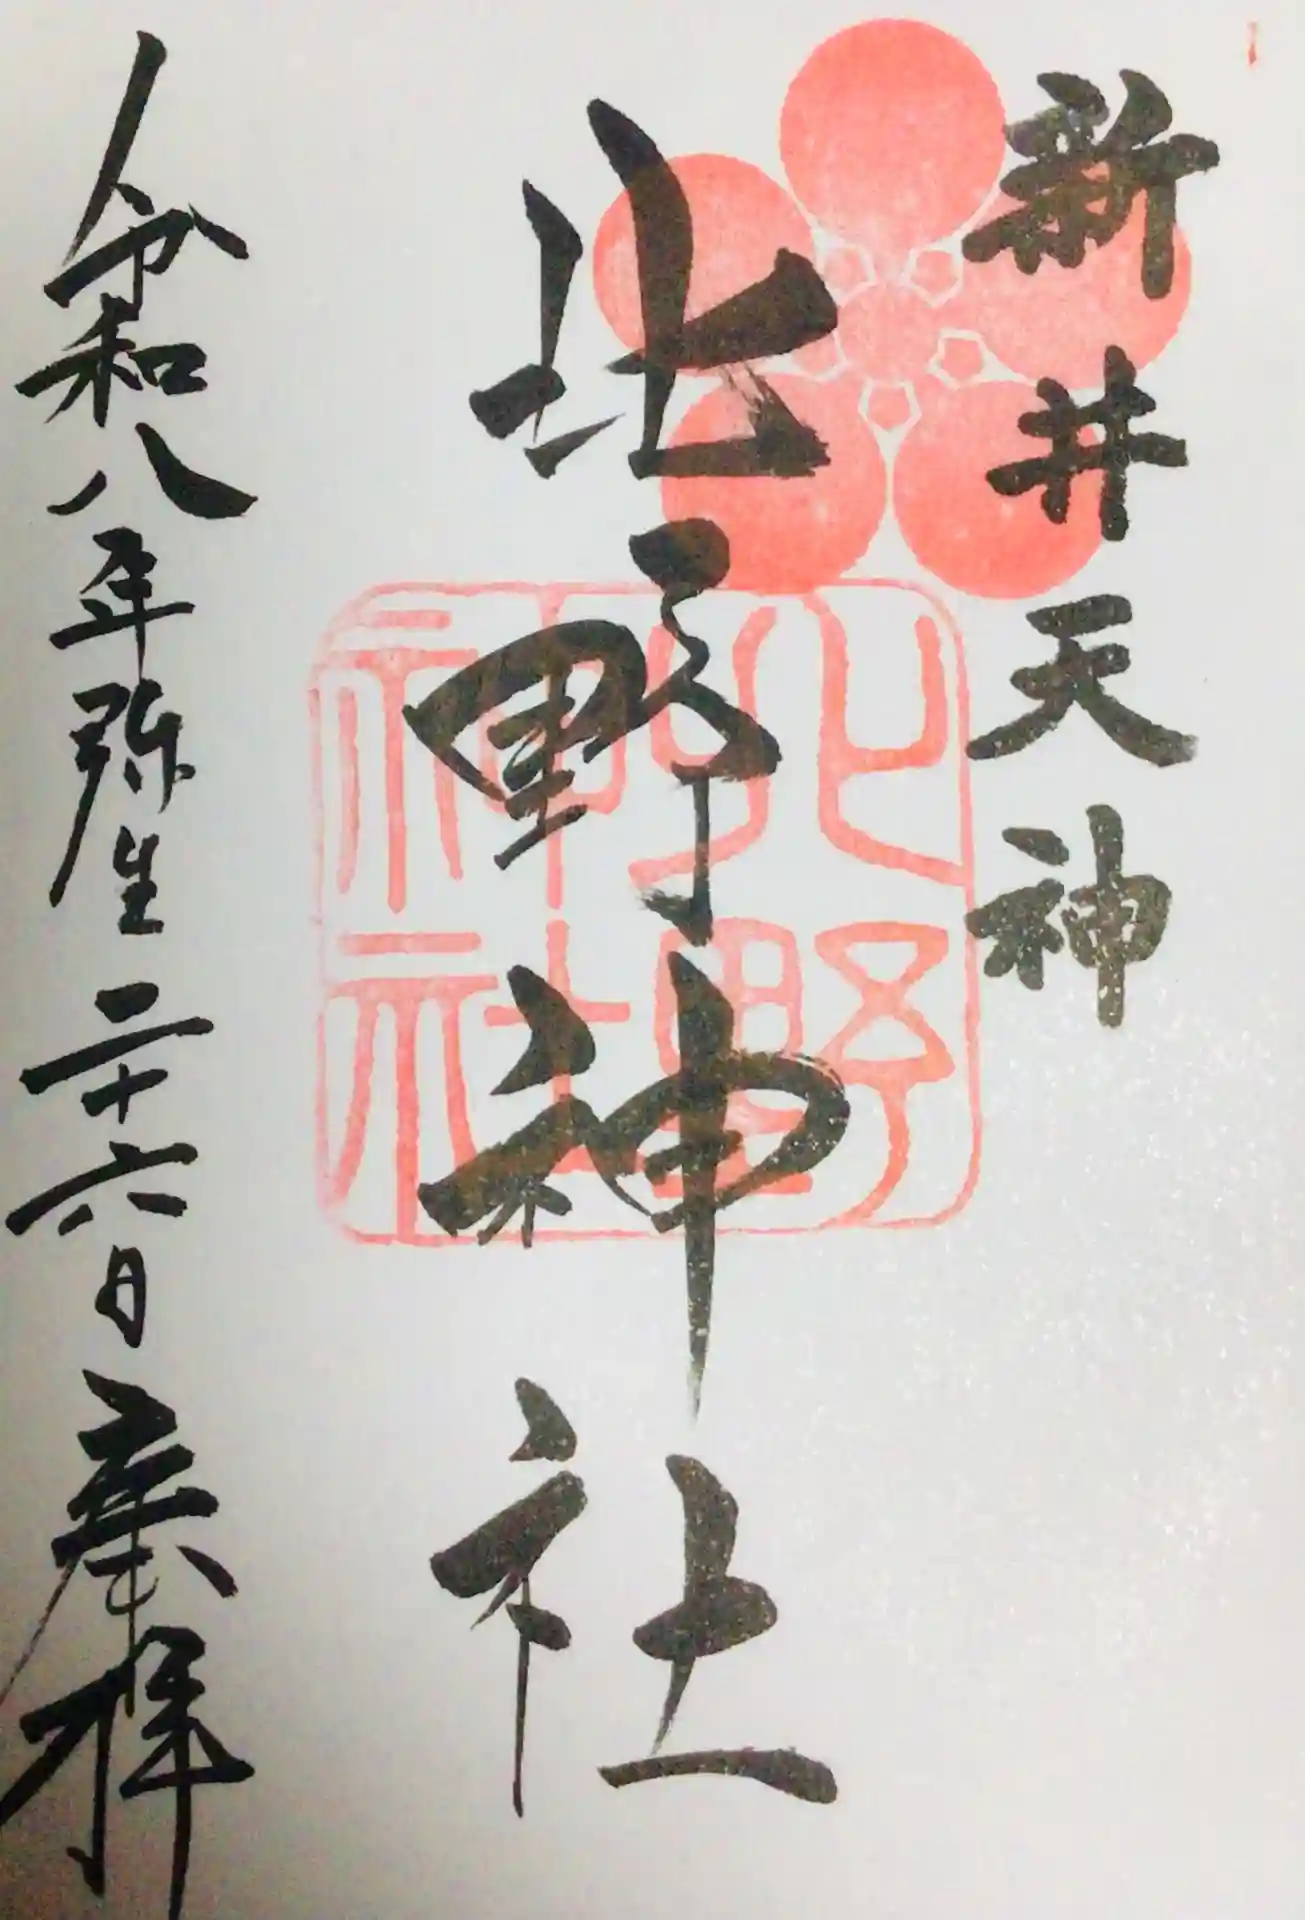 新井天神
北野神社
北野神社
令和八年弥生二十六日奉拝